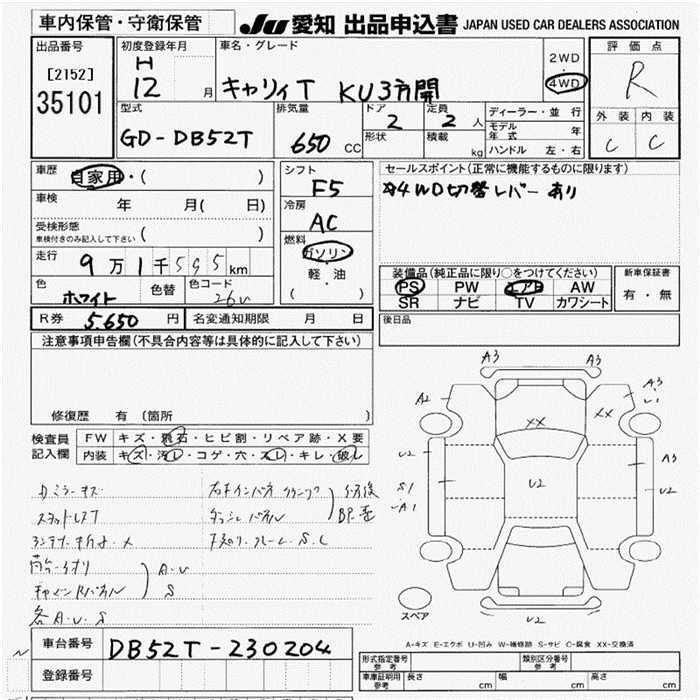 車内保管・守衛保管
JU 愛知 出品申込書 JAPAN USED CAR DEALERS ASSOCIATION
出品番号
[2152]
35101
初度登録年月
H
12 月
車名・グレード
キャリィT KU3方開
2WD
・
4WD
評価点
R
外装 内装
C C
型式
GD-DB52T
排気量
650 CC
ドア
2
形状
定員
2 人
積載
kg
ディーラー・並行
モデル年式 年
ハンドル 左・右
車歴
自家用・( )
車検
年 月( 日)
受検形態
車検付きのみ記入して下さい ( )
走行
9万1千595km
色
ホワイト
色替
色コード
26U
シフト
F5
冷房
AC
燃料
ガソリン
軽・油
( )
セールスポイント(正常に機能するものに限ります)
4WD切替レバーあり
装備品(純正品に限り○をつけてください)
PS PW エアB AW
SR ナビ TV カワシート
新車保証書
有・無
R券 5.650 円
名変通知期限 月 日
後日品
注意事項申告欄(不具合内容等は具体的に記入して下さい)
修復歴 有 (箇所 )
検査員
記入欄
FW キズ・飛石・ヒビ割・リペア跡・X要
内装 キズ・汚レ・コゲ・穴・スレ・キレ・破レ
スタッドレスT
A.U
S
各A.U.S
A3 A3
A2
A3
XX XX
U2
S1
A1
U2
A3
U2
U2
スペア
A-キズ E-エクボ U-凹み W-補修跡 S-サビ C-腐食 XX-交換済
車台番号 DB52T-230204
登録番号
形式指定番号
参考
類別区分番号
参考
車庫証明用
参考
長さ cm 幅 cm 高さ cm